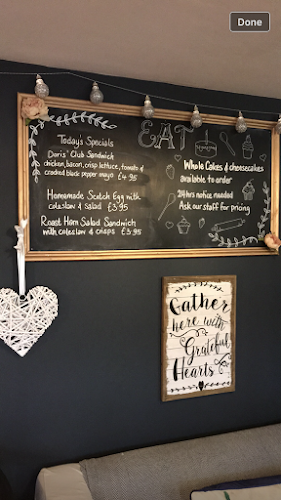 Done
EAT
Today's Specials
Doris' Club Sandwich
chicken, bacon, crisp lettuce, tomato &
cracked black pepper mayo £4.95
Homemade Scotch Egg with
coleslaw & salad £3.95
Roast Ham Salad Sandwich
with coleslaw & crisps £3.95
Whole Cakes & cheesecakes
available to order
24hrs notice needed
Ask our staff for pricing
Gather
here with
Grateful
Hearts